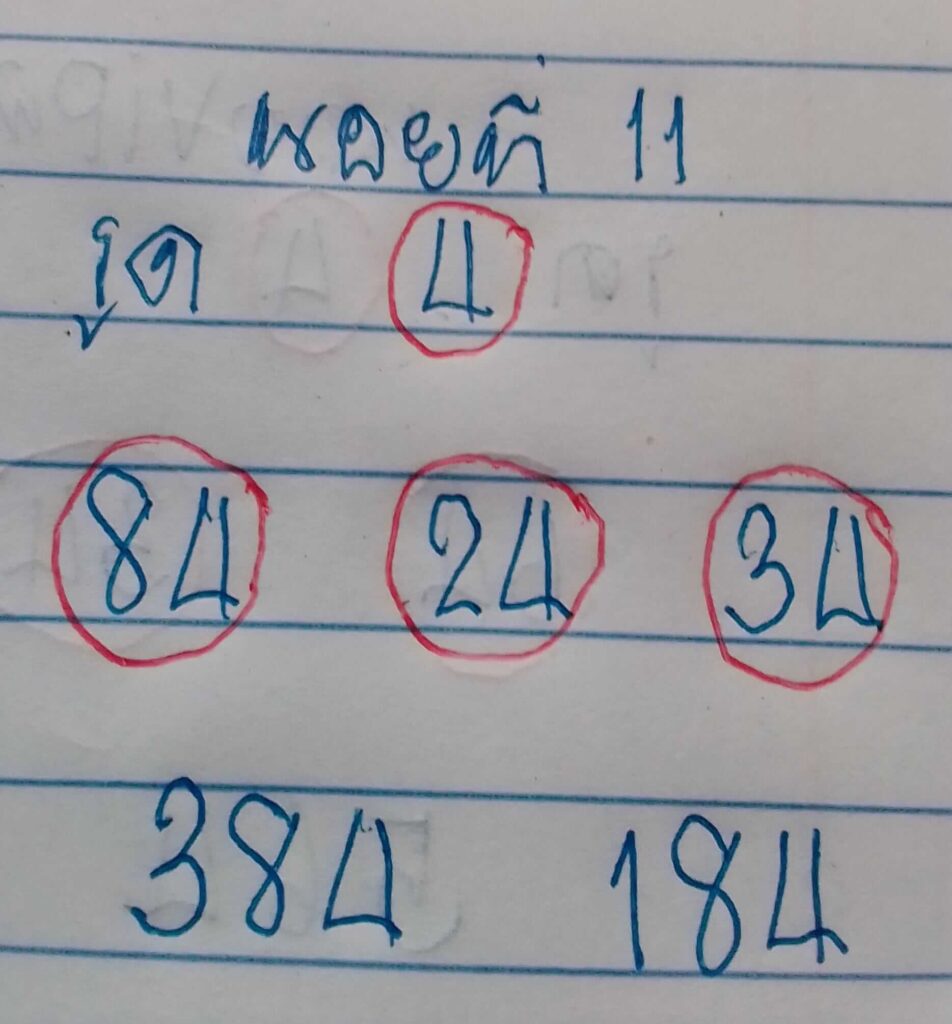 นอยที่ 11
รูด 4
84 24 34
384 184